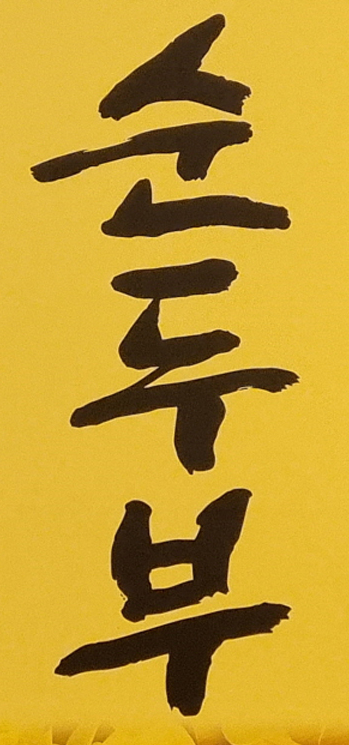 순두부